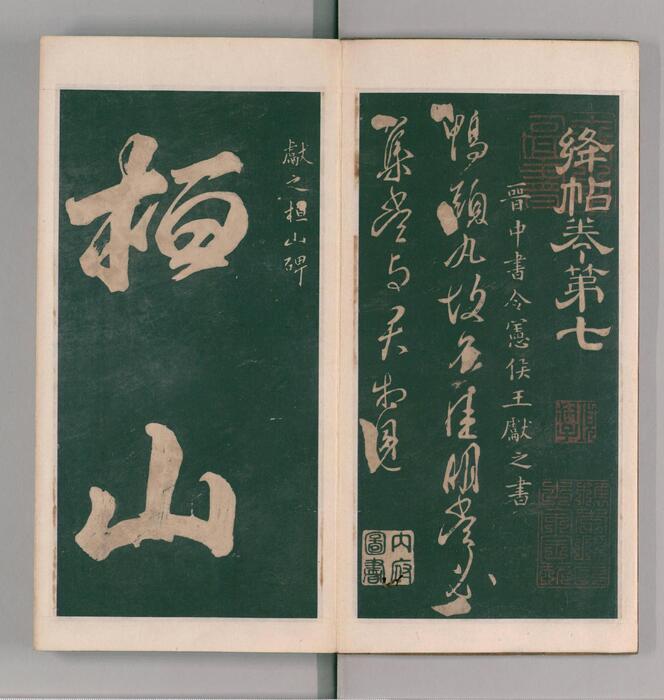 絳帖卷第七
晉中書令憲侯王獻之書
鴨頭丸故不佳明當必
集當与君相見
內府
圖書
獻之桓山碑
桓山